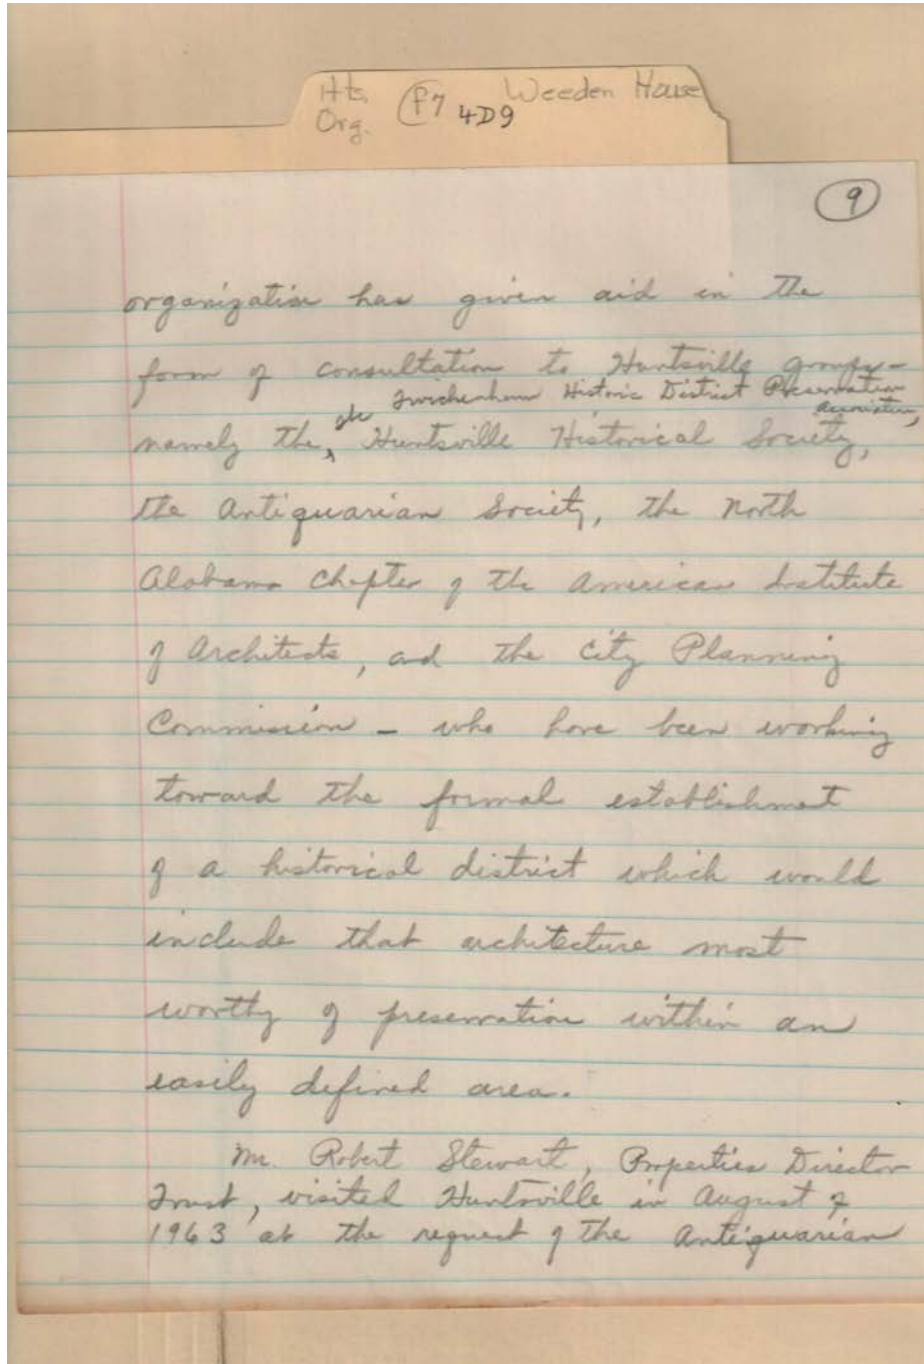 Hts. Weeden House
Org. F7 4D9
9
organization has given aid in the
form of consultation to Huntsville groups –
the Twickenham Historic District Preservation
Association,
namely the, Huntsville Historical Society,
the Antiquarian Society, the North
Alabama Chapter of the American Institute
of Architects, and the City Planning
Commission – who have been working
toward the formal establishment
of a historical district which would
include that architecture most
worthy of preservation within an
easily defined area.
Mr. Robert Stewart, Properties Director
Trust, visited Huntsville in August of
1963 at the request of the Antiquarian